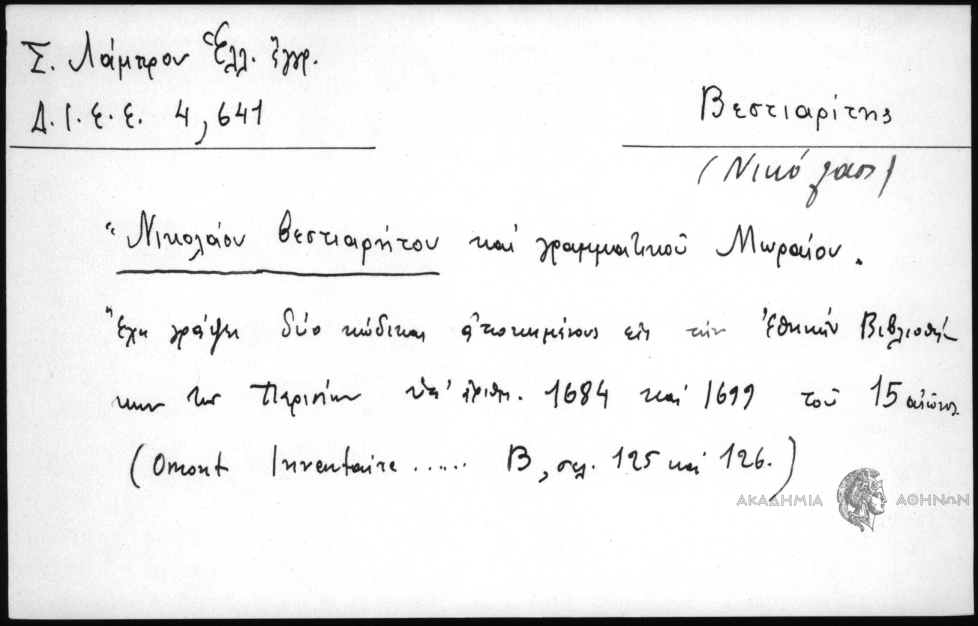 Σ. Λάμπρου Ἑλλ. ἔγγρ.
Δ.Ι.Ε.Ε. 4, 641
Βεστιαρίτης
(Νικόλαος)
"Νικολάου βεστιαρήτου καὶ γραμματικοῦ Μωραίου.
"Ἔχει γράψει δύο κώδικας ἀποκειμένους εἰς τὴν Ἐθνικὴν Βιβλιοθή-
κην τῶν Παρισίων ὑπ' ἀριθμ. 1684 καὶ 1699 τοῦ 15 αἰῶνος
(Omont Inventaire ..... B, σελ. 125 καὶ 126.)
ΑΚΑΔΗΜΙΑ ΑΘΗΝΩΝ